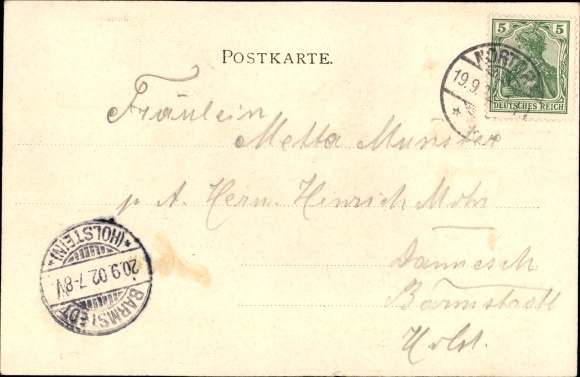 POSTKARTE.
5 5
DEUTSCHES REICH
NORTORF
19.9.
Fräulein
Metta Münster
p. A. Herrn Hinrich Mohr
Dannesch
Barmstedt
Holst.
BARMSTEDT
20.9.02.7-8V
*(HOLSTEIN)*